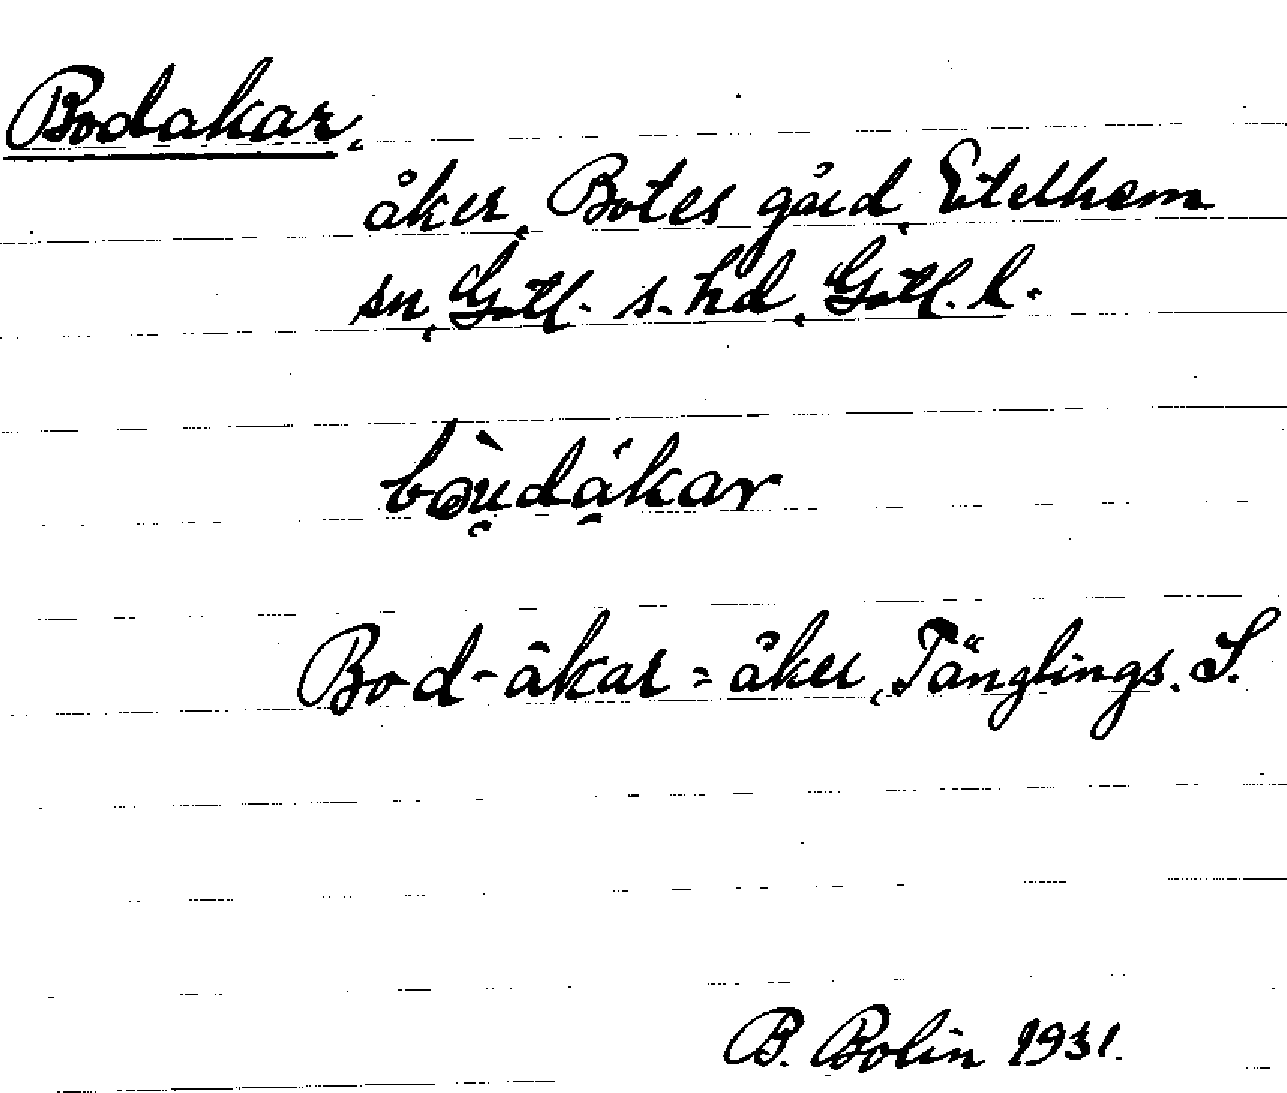 Bodakar,
åker, Botes gård, Etelhem
sn, Gotl. s. hd, Gotl. l.
bòu̯dákar
Bod-åkar = åker, Tänglings. S.
B. Bolin 1931.